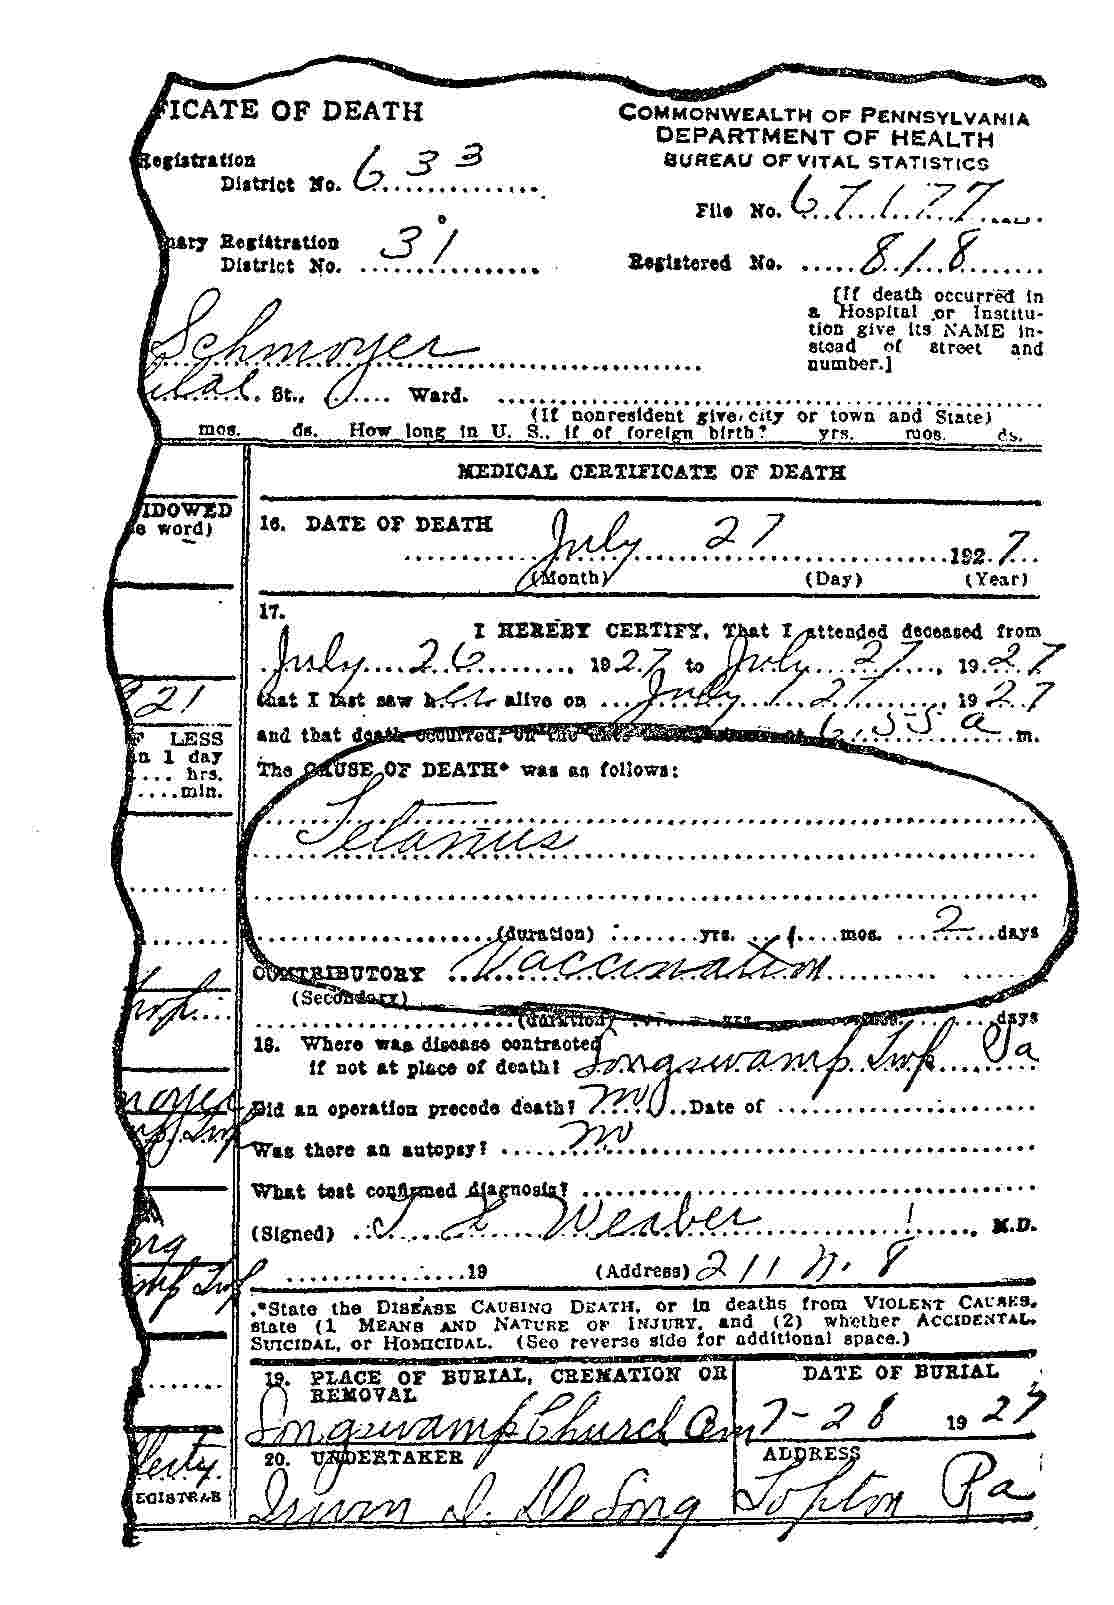 FICATE OF DEATH
COMMONWEALTH OF PENNSYLVANIA
DEPARTMENT OF HEALTH
BUREAU OF VITAL STATISTICS
Registration
District No. 633
File No. 67177
nary Registration
District No. 31
Registered No. 818
[If death occurred in
a Hospital or Institu-
tion give its NAME in-
stead of street and
number.]
Schmoyer
St., Ward.
(If nonresident give city or town and State)
mos. ds. How long in U. S., if of foreign birth? yrs. mos. ds.
MEDICAL CERTIFICATE OF DEATH
IDOWED
e word)
16. DATE OF DEATH
July 27 1927
(Month) (Day) (Year)
17.
I HEREBY CERTIFY, That I attended deceased from
July 26, 1927 to July 27, 1927
that I last saw her alive on July 27, 1927
and that death occurred, on the date 6.55 a m.
21
F LESS
n 1 day
hrs.
min.
The CAUSE OF DEATH* was as follows:
Tetanus
(duration) yrs. mos. 2 days
CONTRIBUTORY Vaccination
(Secondary)
(duration) yrs. mos. days
18. Where was disease contracted
if not at place of death? Longswamp Twp Pa
Did an operation precede death? no Date of
Was there an autopsy? no
What test confirmed diagnosis?
(Signed) Weaber M.D.
19 (Address) 211 N. 8
*State the DISEASE CAUSING DEATH, or in deaths from VIOLENT CAUSES,
state (1 MEANS AND NATURE OF INJURY, and (2) whether ACCIDENTAL,
SUICIDAL, or HOMICIDAL. (See reverse side for additional space.)
19. PLACE OF BURIAL, CREMATION OR
REMOVAL
DATE OF BURIAL
Longswamp Church Cem 7-28 1927
20. UNDERTAKER
ADDRESS
Irwin D. DeLong Topton Pa
EGISTRAR